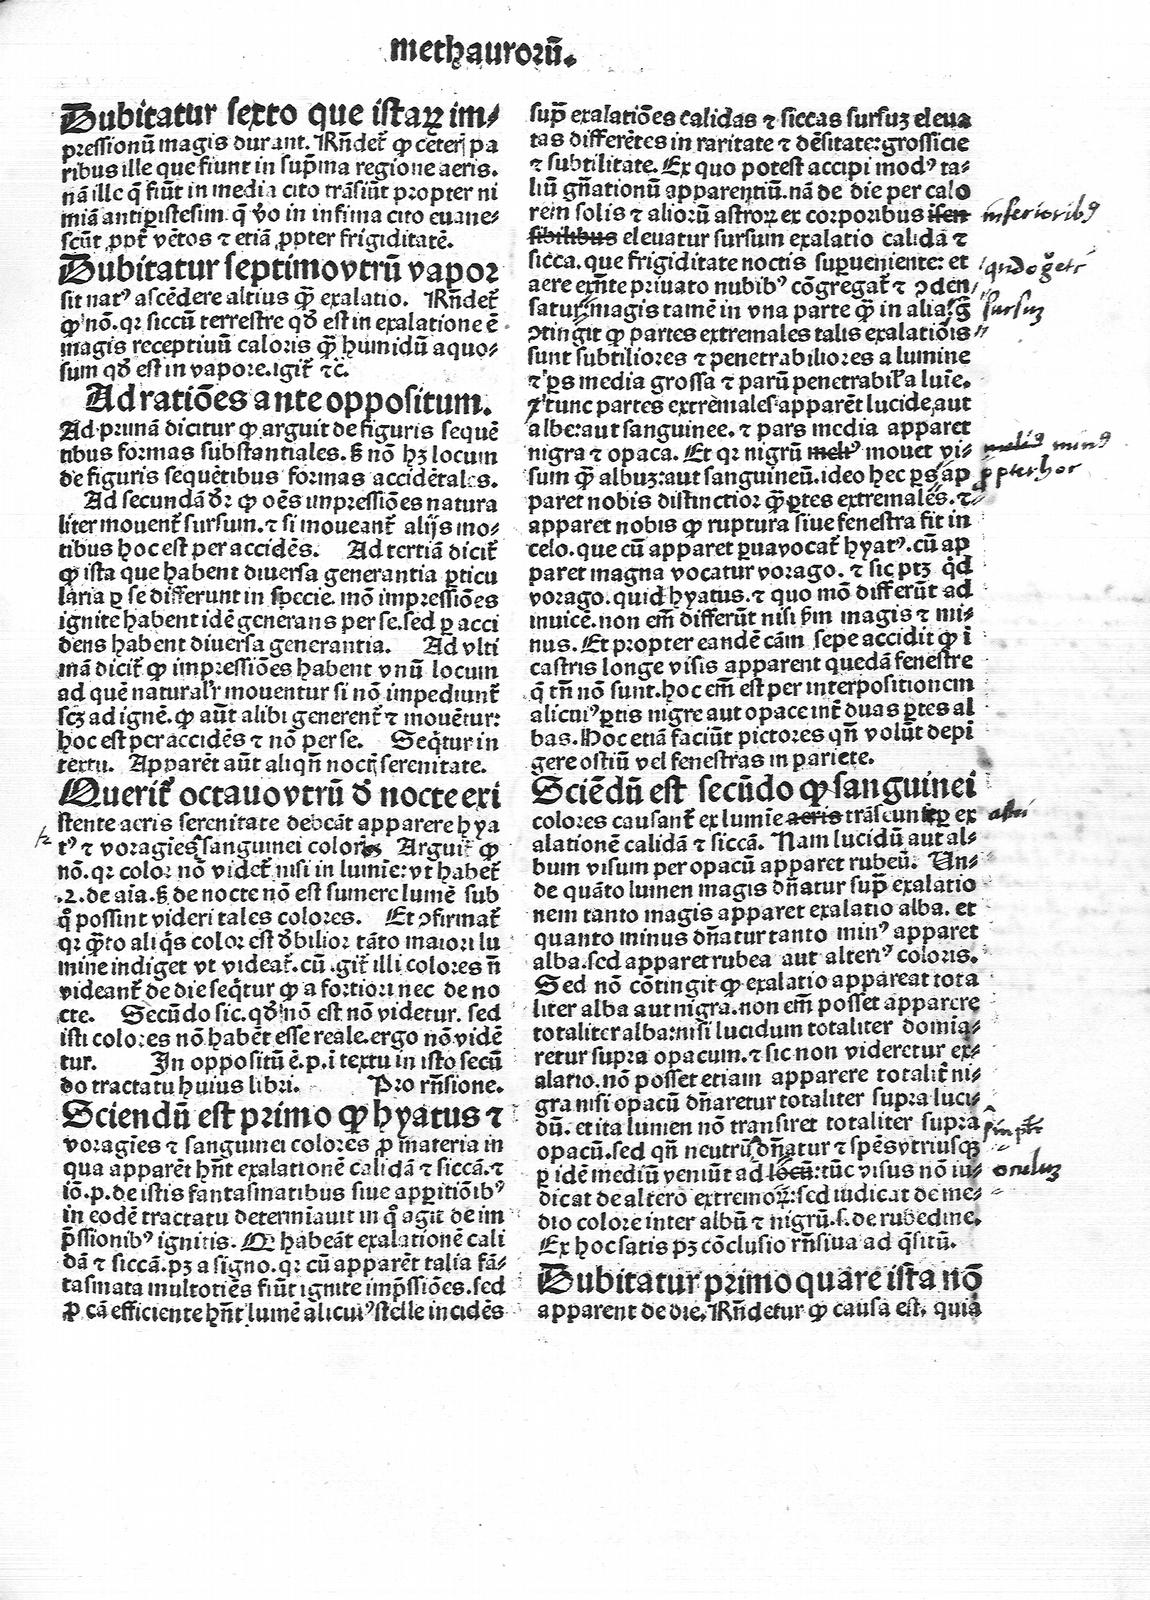 methaurorū.
Dubitatur sexto que istaꝝ im⸗
pressionū magis durant. Rn̄det᷑ ꝙ ceteri pa
ribus ille que fiunt in sup̄ma regione aeris.
nā ille q̄ fiūt in media cito trāsiūt propter ni
miā antiꝑistesim. q̄ v̄o in infima cito euane⸗
scūt ꝓpt̄ vētos ⁊ etiā ꝓpter frigiditatē.
Dubitatur septimo vtrū vapor
sit natꝰ ascēdere altius ꝙ̄ exalatio. Rn̄det᷑
ꝙ nō. qꝛ siccū terrestre qd̄ est in exalatione ē
magis receptiuū caloris ꝙ̄ humidū aquo⸗
sum qd̄ est in vapore. igit᷑ ⁊c̄.
Ad ratiōes ante oppositum.
Ad primā dicitur ꝙ arguit de figuris sequē
tibus formas substantiales. s̄ nō hꝫ locum
de figuris sequētibus formas accidētales.
Ad secundā d̄r ꝙ oēs impressiōes natura
liter mouent᷑ sursum. ⁊ si moueant᷑ alijs mo⸗
tibus hoc est per accidēs. Ad tertiā dicit᷑
ꝙ ista que habent diuersa generantia ꝑticu
laria ꝑ se differunt in specie. mō impressiōes
ignite habent idē generans per se. sed ꝑ acci
dens habent diuersa generantia. Ad vlti
mā dicit᷑ ꝙ impressiōes habent vnū locum
ad quē natural'r mouentur si nō impediunt᷑
scꝫ ad ignē. ꝙ aūt alibi generent᷑ ⁊ mouētur:
hoc est per accidēs ⁊ nō per se. Seq̄tur in
textu. Apparēt aūt aliqn̄ noctꝭ serenitate.
Querit᷑ octauo vtrū d̄ nocte exi
stente aeris serenitate debeāt apparere hya
tꝰ ⁊ voragiēs sanguinei colores Arguit᷑ ꝙ
nō. qꝛ color nō videt᷑ nisi in lumīe: vt habet᷑
.2. de aīa. s̄ de nocte nō est sumere lumē sub
q̊ possint videri tales colores. Et ↄfirmat᷑
qꝛ q̄to aliq̄s color est d̄bilior tāto maiori lu
mine indiget vt videat᷑. cū .git᷑ illi colores n̄
videant᷑ de die seq̄tur ꝙ a fortiori nec de no
cte. Secūdo sic. qd̄ nō est nō videtur. sed
isti colores nō habēt esse reale. ergo nō vidē
tur. In oppositū ē. p. i textu in isto secū
do tractatu huius libri. Pro rn̄sione.
Sciendū est primo ꝙ hyatus ⁊
voragiēs ⁊ sanguinei colores ꝓ materia in
qua apparēt hn̄t exalationē calidā ⁊ siccā. ⁊
iō. p. de istis fantasmatibus siue apꝑitiōibꝰ
in eodē tractatu determīauit in q̊ agit de im
p̄ssionibꝰ ignitis. Q̄ habeāt exalationē cali
dā ⁊ siccā. pꝫ a signo. qꝛ cū apparēt talia fā⸗
tasmata multotiēs fiūt ignite imp̄ssiōes. sed
ꝓ cā efficiente hn̄t lumē alicuiꝰ stelle incidēs
sup̄ exalatiōes calidas ⁊ siccas sursuꝫ eleua
tas differētes in raritate ⁊ dēsitate: grossicie
⁊ subtilitate. Ex quo potest accipi modꝰ ta⸗
liū gn̄ationū apparentiū. nā de die per calo
rem solis ⁊ aliorū astroꝝ ex corporibus isen inferioribꝰ
sibilibus eleuatur sursum exalatio calida ⁊
sicca. que frigiditate noctis superueniente: et
aere exn̄te priuato nubibꝰ cōgregat᷑ ⁊ ↄden
satur magis tamē in vna parte ꝙ̄ in alia. sursuꝫ
ↄtingit ꝙ partes extremales talis exalatiōis
sunt subtiliores ⁊ penetrabiliores a lumine
⁊ ꝑs media grossa ⁊ parū penetrabil'a luīe.
⁊ tunc partes extremales apparēt lucide aut
albe: aut sanguinee. ⁊ pars media apparet
nigra ⁊ opaca. Et qꝛ nigrū meliꝰ mouet vi⸗ meliꝰ minꝰ
sum ꝙ̄ albuꝫ: aut sanguineū. ideo hec ꝑs ap ꝓpter hoc
paret nobis distinctior ꝙ̄ ꝑtes extremales. ⁊
apparet nobis ꝙ ruptura siue fenestra fit in
celo. que cū apparet ꝑua vocat᷑ hyatꝰ. cū ap
paret magna vocatur vorago. ⁊ sic ptꝫ qd̄
vorago. quid hyatus. ⁊ quo mō differūt ad
inuicē. non em̄ differūt nisi ẜm magis ⁊ mi⸗
nus. Et propter eandē cām sepe accidit ꝙ ī
castris longe visis apparent quedā fenestre
q̄ tn̄ nō sunt. hoc em̄ est per interpositionem
alicuiꝰ ꝑtis nigre aut opace int᷑ duas ꝑtes al
bas. Hoc etiā faciūt pictores qn̄ volūt depi
gere ostiū vel fenestras in pariete.
Sciēdū est secūdo ꝙ sanguinei
colores causant᷑ ex lumīe aeris trāseunte ꝑ ex
alationē calidā ⁊ siccā. Nam lucidū aut al⸗
bum visum per opacū apparet rubeū. Un⸗
de quāto lumen magis dn̄atur sup̄ exalatio
nem tanto magis apparet exalatio alba. et
quanto minus dn̄atur tanto minꝰ apparet
alba. sed apparet rubea aut alteriꝰ coloris.
Sed nō cōtingit ꝙ exalatio appareat tota
liter alba aut nigra. non em̄ posset apparere
totaliter alba: nisi lucidum totaliter domia⸗
retur supra opacum. ⁊ sic non videretur ex⸗
alatio. nō posset etiam apparere totalit᷑ ni⸗
gra nisi opacū dn̄aretur totaliter supra luci
dū. et ita lumen nō transiret totaliter supra
opacū. sed qn̄ neutrū dn̄atur ⁊ spēs vtriusqꝫ
ꝑ idē mediū veniūt ad locū: tūc visus nō iu⸗ oculuꝫ
dicat de altero extremoꝝ: sed iudicat de me⸗
dio colore inter albū ⁊ nigrū. s. de rubedine.
Ex hoc satis pꝫ cōclusio rn̄siua ad q̄sitū.
Dubitatur primo quare ista nō
apparent de die. Rn̄detur ꝙ causa est. quia